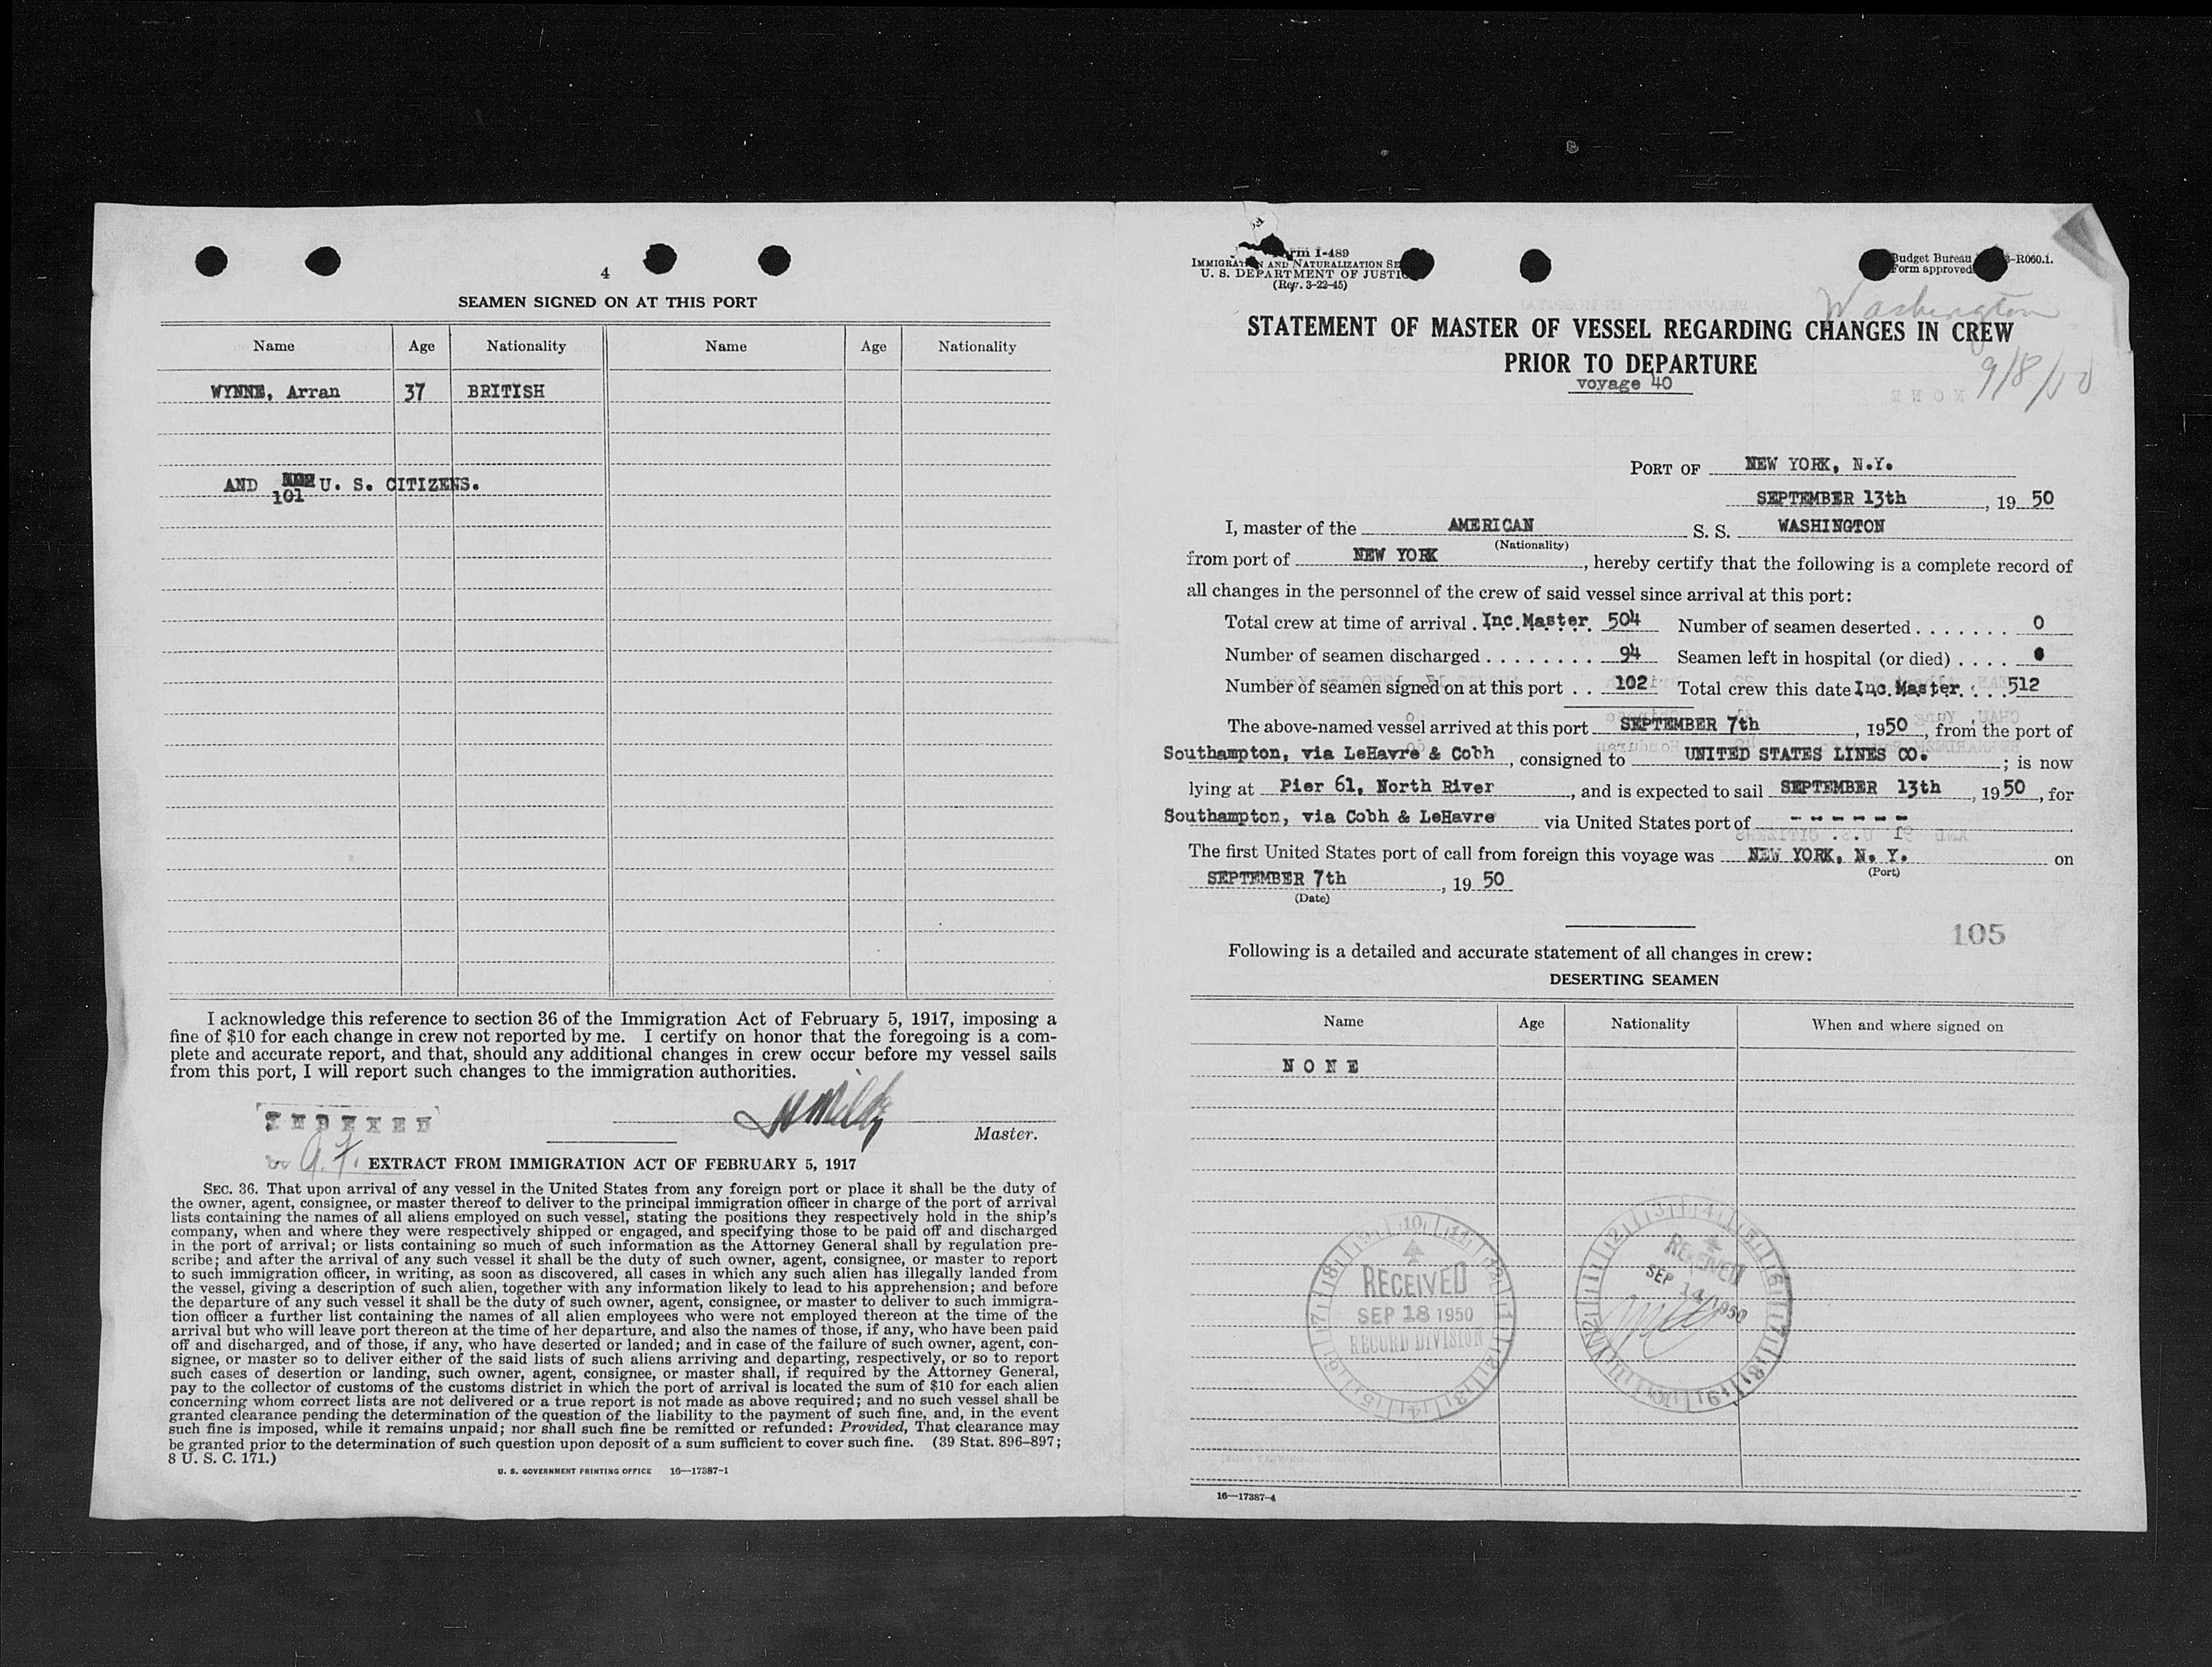 4
SEAMEN SIGNED ON AT THIS PORT
Name Age Nationality Name Age Nationality
WYNNE, Arran 37 BRITISH
AND U. S. CITIZENS.
101
I acknowledge this reference to section 36 of the Immigration Act of February 5, 1917, imposing a
fine of $10 for each change in crew not reported by me. I certify on honor that the foregoing is a com-
plete and accurate report, and that, should any additional changes in crew occur before my vessel sails
from this port, I will report such changes to the immigration authorities.
INDEXED
Master.
EXTRACT FROM IMMIGRATION ACT OF FEBRUARY 5, 1917
SEC. 36. That upon arrival of any vessel in the United States from any foreign port or place it shall be the duty of
the owner, agent, consignee, or master thereof to deliver to the principal immigration officer in charge of the port of arrival
lists containing the names of all aliens employed on such vessel, stating the positions they respectively hold in the ship's
company, when and where they were respectively shipped or engaged, and specifying those to be paid off and discharged
in the port of arrival; or lists containing so much of such information as the Attorney General shall by regulation pre-
scribe; and after the arrival of any such vessel it shall be the duty of such owner, agent, consignee, or master to report
to such immigration officer, in writing, as soon as discovered, all cases in which any such alien has illegally landed from
the vessel, giving a description of such alien, together with any information likely to lead to his apprehension; and before
the departure of any such vessel it shall be the duty of such owner, agent, consignee, or master to deliver to such immigra-
tion officer a further list containing the names of all alien employees who were not employed thereon at the time of the
arrival but who will leave port thereon at the time of her departure, and also the names of those, if any, who have been paid
off and discharged, and of those, if any, who have deserted or landed; and in case of the failure of such owner, agent, con-
signee, or master so to deliver either of the said lists of such aliens arriving and departing, respectively, or so to report
such cases of desertion or landing, such owner, agent, consignee, or master shall, if required by the Attorney General,
pay to the collector of customs of the customs district in which the port of arrival is located the sum of $10 for each alien
concerning whom correct lists are not delivered or a true report is not made as above required; and no such vessel shall be
granted clearance pending the determination of the question of the liability to the payment of such fine, and, in the event
such fine is imposed, while it remains unpaid; nor shall such fine be remitted or refunded: Provided, That clearance may
be granted prior to the determination of such question upon deposit of a sum sufficient to cover such fine. (39 Stat. 896–897;
8 U. S. C. 171.)
U. S. GOVERNMENT PRINTING OFFICE 16—17387-1
I-489
AND NATURALIZATION
U. S. DEPARTMENT OF
(Rev. 3-22-45)
Budget Bureau -R060.1.
Form approved
Washington
9/8/50
STATEMENT OF MASTER OF VESSEL REGARDING CHANGES IN CREW
PRIOR TO DEPARTURE
voyage 40
PORT OF NEW YORK, N.Y.
SEPTEMBER 13th, 19 50
I, master of the AMERICAN S. S. WASHINGTON
(Nationality)
from port of NEW YORK, hereby certify that the following is a complete record of
all changes in the personnel of the crew of said vessel since arrival at this port:
Total crew at time of arrival . Inc. Master. 504 Number of seamen deserted . . . . . . . 0
Number of seamen discharged . . . . . . . . 94 Seamen left in hospital (or died) . . . .
Number of seamen signed on at this port . . 102 Total crew this date Inc. Master. . . . 512
The above-named vessel arrived at this port SEPTEMBER 7th, 1950, from the port of
Southampton, via LeHavre & Cobh, consigned to UNITED STATES LINES CO.; is now
lying at Pier 61, North River, and is expected to sail SEPTEMBER 13th, 19 50, for
Southampton, via Cobh & LeHavre via United States port of - - - - - -
The first United States port of call from foreign this voyage was NEW YORK, N. Y. on
(Port)
SEPTEMBER 7th, 19 50
(Date)
105
Following is a detailed and accurate statement of all changes in crew:
DESERTING SEAMEN
Name Age Nationality When and where signed on
N O N E
RECEIVED
SEP 18 1950
RECORD DIVISION
RECEIVED
SEP 14 1950
16—17387-4